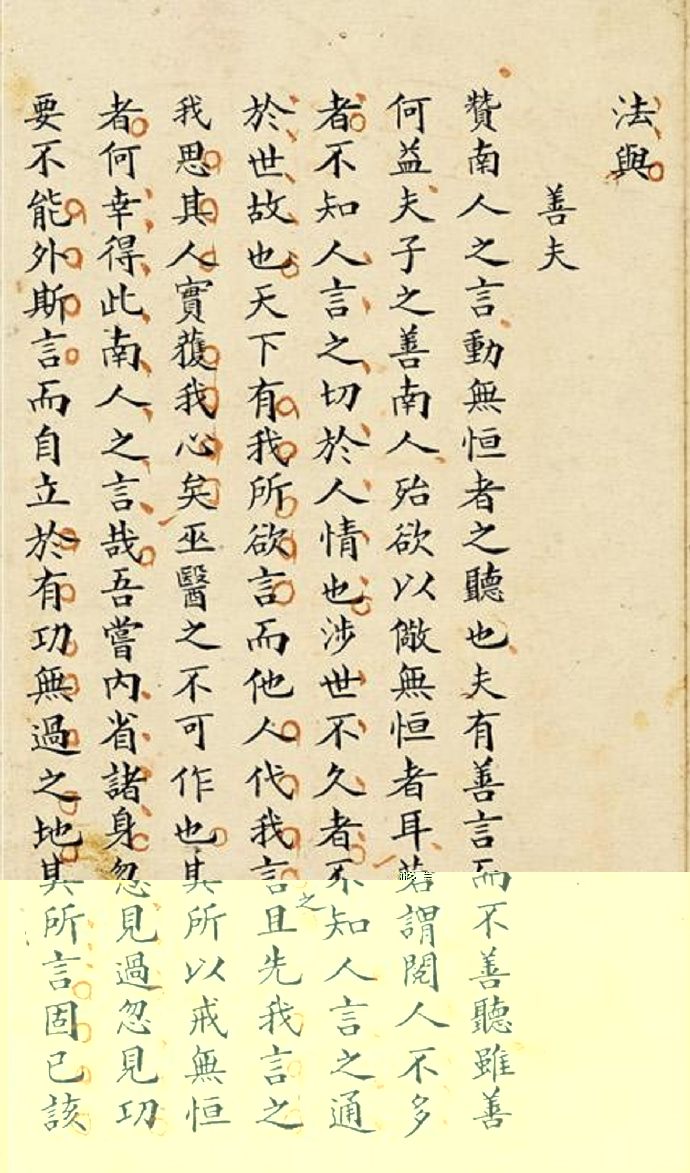 法與
善夫
贊南人之言動無恒者之聽也夫有善言而不善聽雖善
何益夫子之善南人殆欲以儆無恒者耳若謂閱人不多
者不知人言之切於人情也涉世不久者不知人言之通
於世故也天下有我所欲言而他人代我言之且先我言之
我思其人實獲我心矣巫醫之不可作也其所以戒無恒
者何幸得此南人之言哉吾嘗內省諸身忽見過忽見功
要不能外斯言而自立於有功無過之地其所言固已該